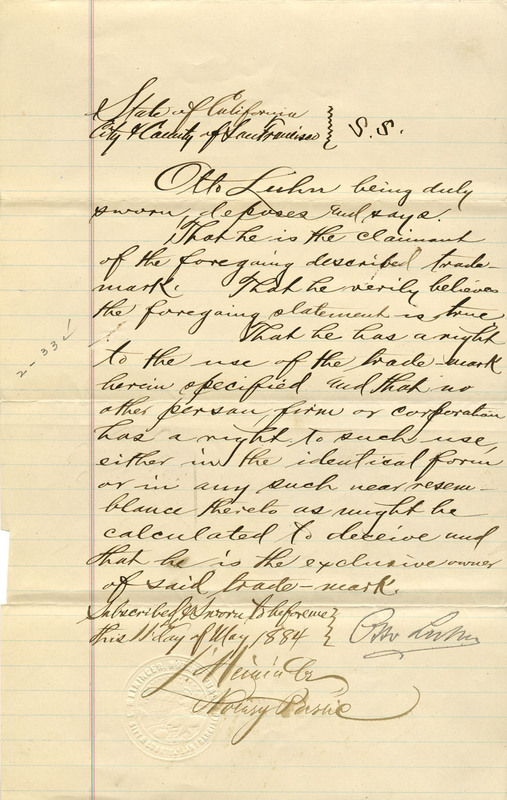 State of California
City & County of San Francisco } S.S.
Otto Luhn being duly
sworn, deposes and says.
That he is the claimant
of the foregoing described trade-
mark. That he verily believes
the foregoing statement is true
That he has a right
to the use of the trade-mark
herein specified and that no
other person firm or corporation
has a right to such use,
either in the identical form
or in any such near resem-
blance thereto as might be
calculated to deceive and
that he is the exclusive owner
of said trade-mark.
Subscribed & Sworn to before me }
this 11 day of May 1884 } Otto Luhn
Notary Public
2-33 ✓